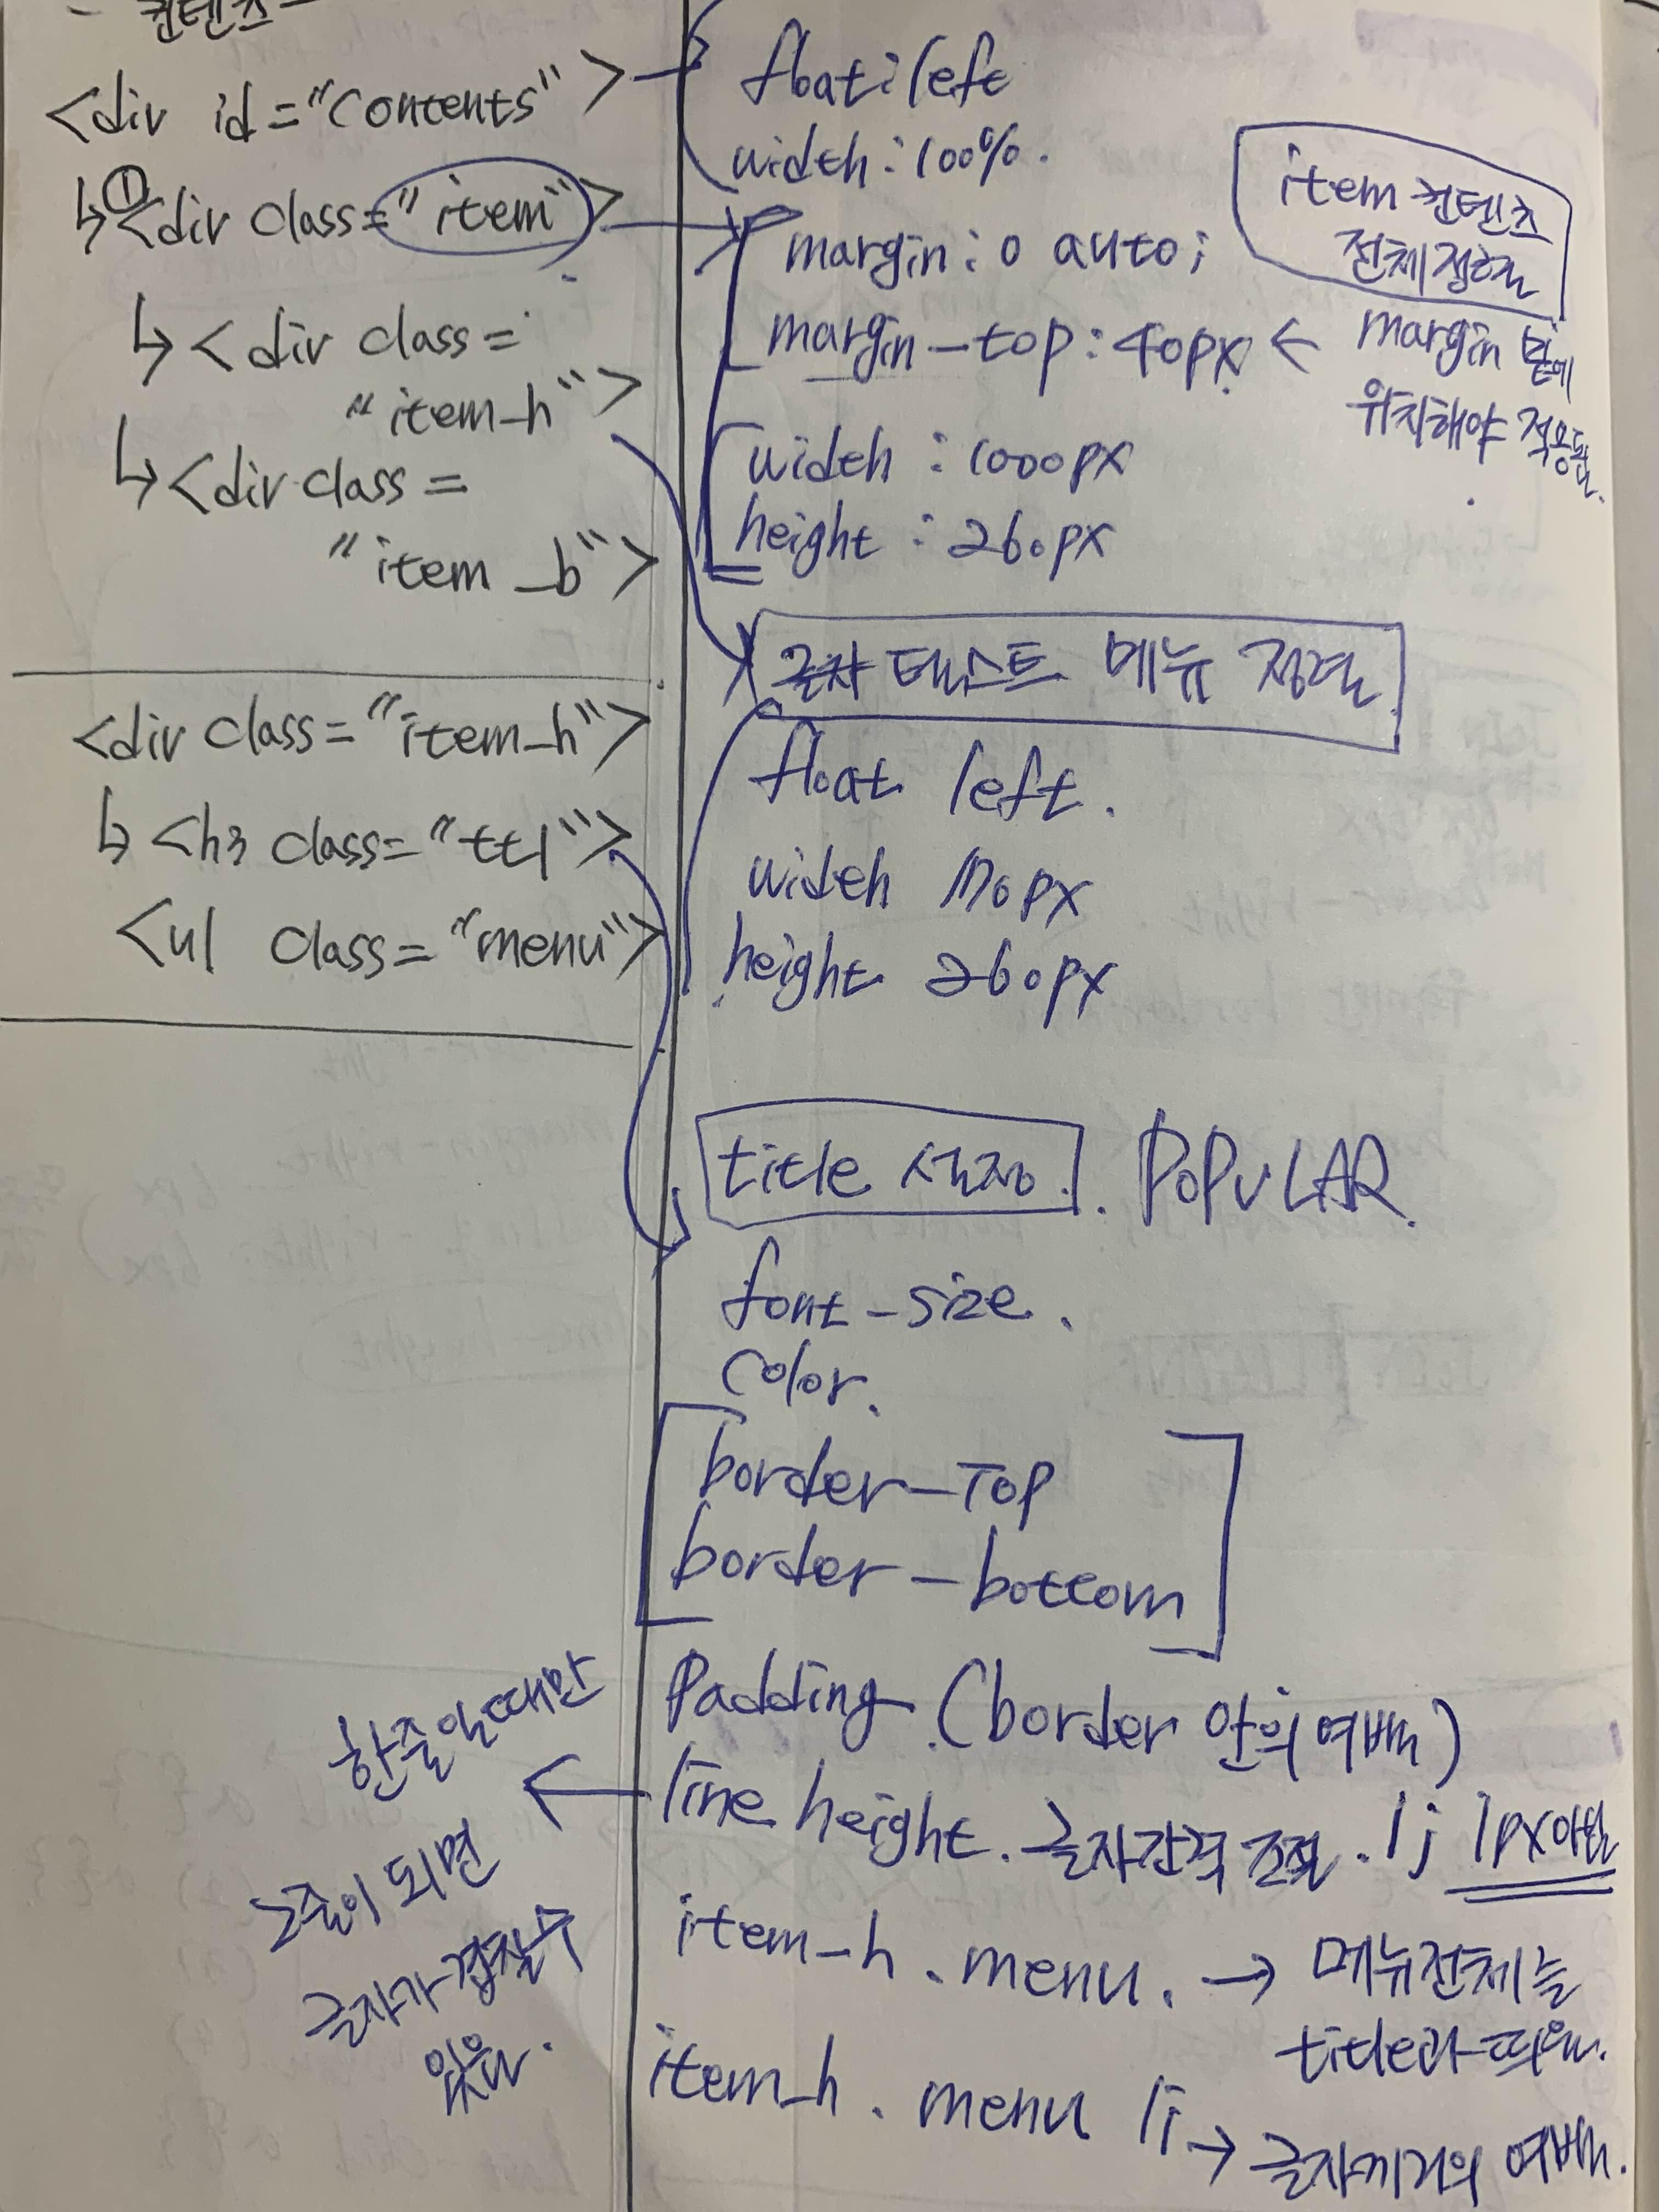 - 컨텐츠
<div id="contents">
↳①<div class="item">
↳<div class=
"item_h">
↳<div class=
"item_b">
<div class="item_h">
↳<h3 class="ttl">
<ul class="menu">
float: left
width: 100%.
item 컨텐츠
전체정렬
margin: 0 auto;
margin-top: 40px ← margin 밑에
위치해야 적용됨.
width: 1000px
height: 260px
글자 텍스트 메뉴 정렬
float left.
width 170px
height 260px
title 설정. POPULAR.
font-size.
color.
border-Top
border-bottom
Padding (border 안의 여백)
line height. 글자간격 조절. 1; 1px아님
한줄일때만
2줄이 되면
글자가 겹칠수
있음.
item_h .menu. → 메뉴전체를
title과 띄움.
item_h . menu li → 글자끼리의 여백.